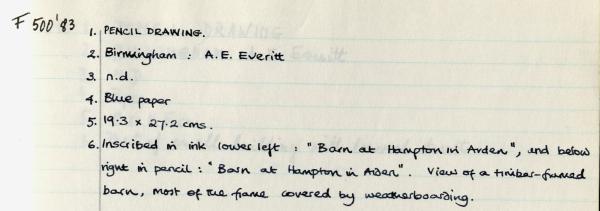 F 500'83
1. PENCIL DRAWING.
2. Birmingham : A.E. Everitt
3. n.d.
4. Blue paper
5. 19.3 x 27.2 cms.
6. Inscribed in ink lower left : "Barn at Hampton in Arden", and below
right in pencil : "Barn at Hampton in Arden". View of a timber-framed
barn, most of the frame covered by weatherboarding.